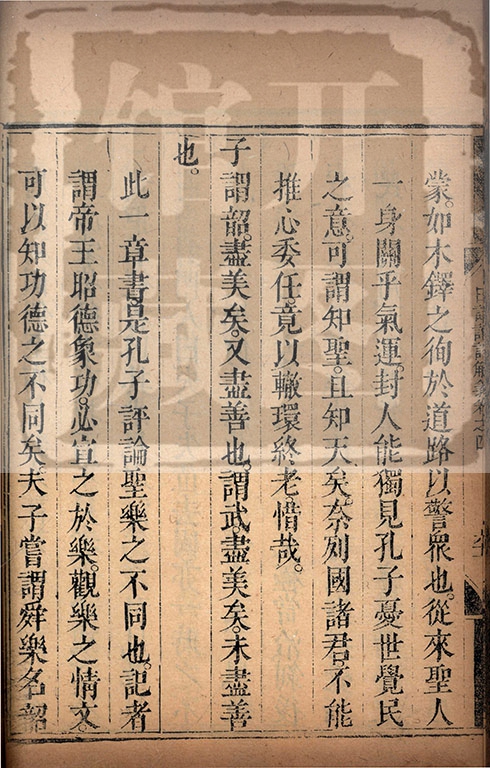 蒙。如木鐸之徇於道路以警衆也。從來聖人
一身關乎氣運。封人能獨見孔子憂世覺民
之意。可謂知聖。且知天矣。奈列國諸君。不能
推心委任。竟以轍環終老。惜哉。
子謂韶。盡美矣。又盡善也。謂武。盡美矣。未盡善
也。
此一章書。是孔子評論聖樂之不同也。記者
謂帝王昭德象功。必宣之於樂。觀樂之情文。
可以知功德之不同矣。夫子嘗謂舜樂名韶